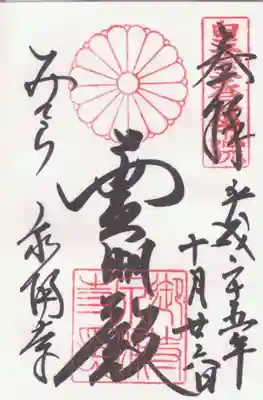 皇室香華院
奉拝
平成二十五年
十月廿六日
霊明殿
みてら
泉涌寺